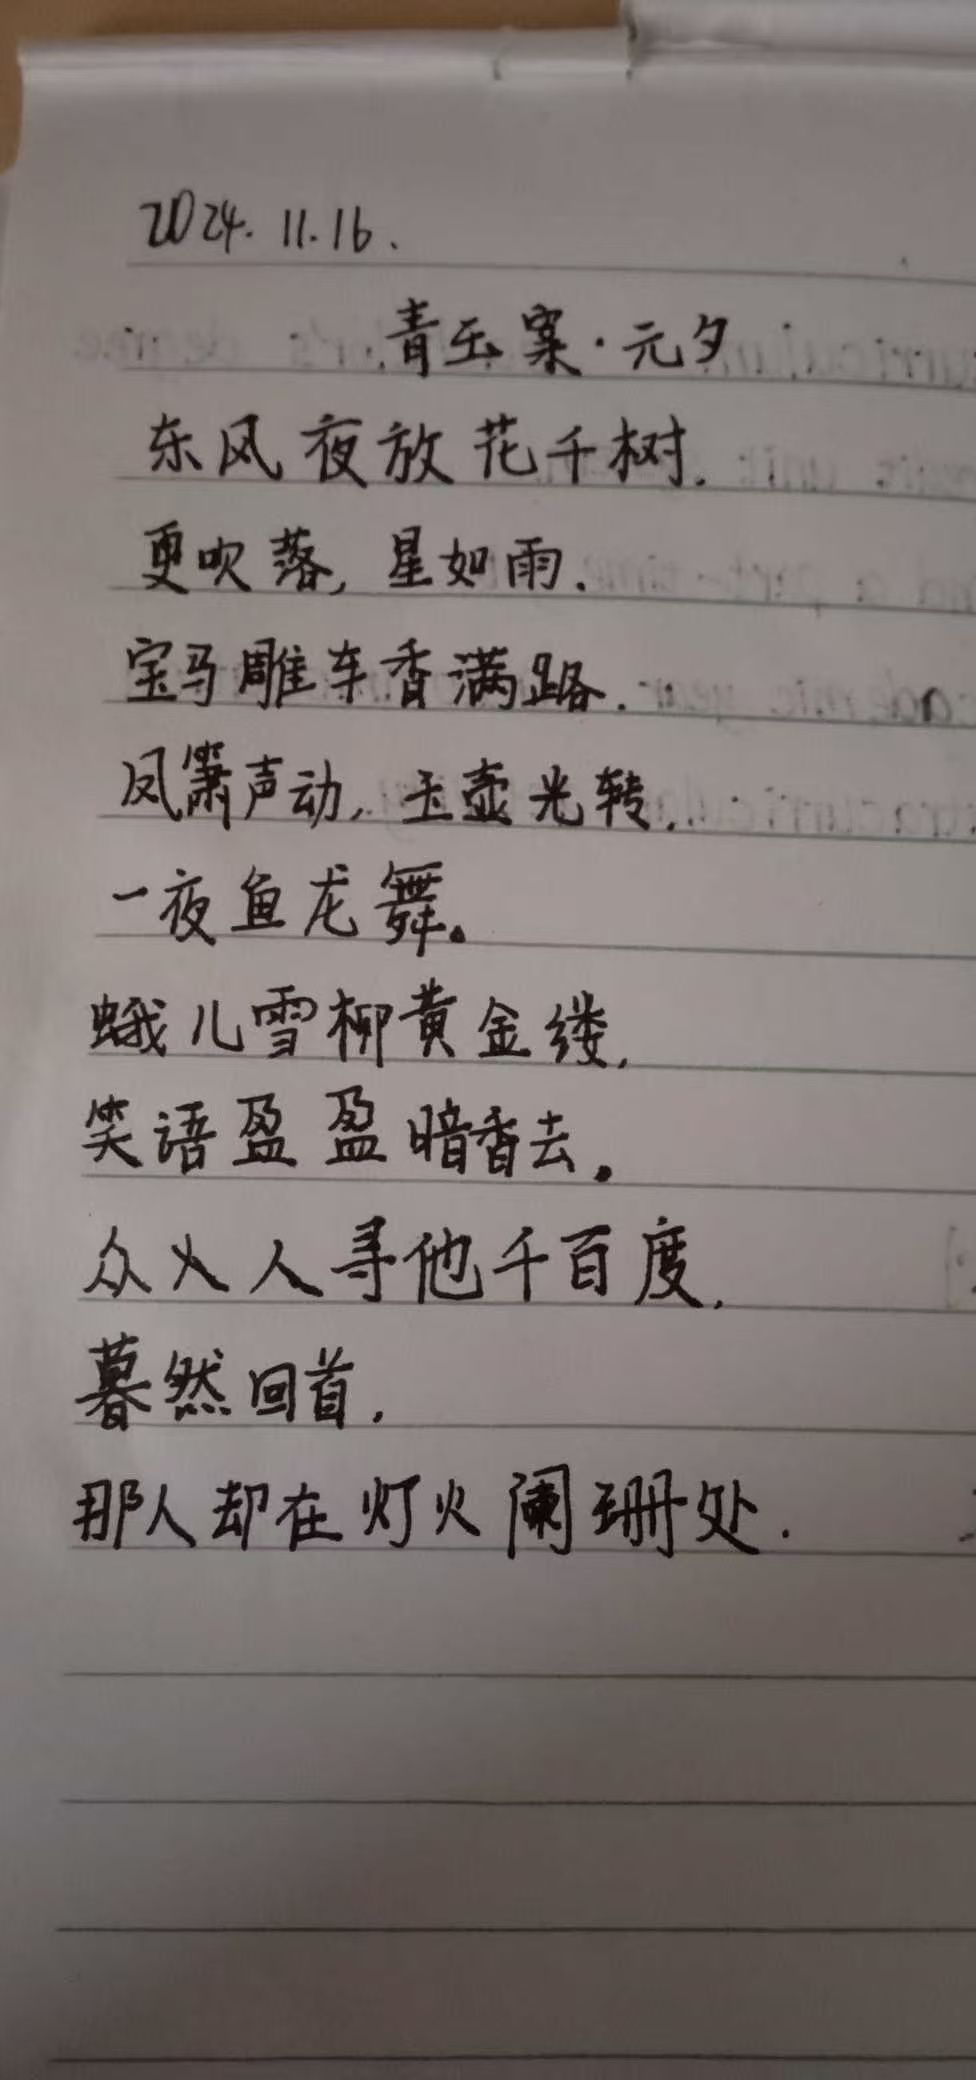 2024.11.16.
青玉案·元夕
东风夜放花千树.
更吹落,星如雨.
宝马雕车香满路.
凤箫声动,玉壶光转.
一夜鱼龙舞。
蛾儿雪柳黄金缕,
笑语盈盈暗香去。
众人寻他千百度,
暮然回首,
那人却在灯火阑珊处.